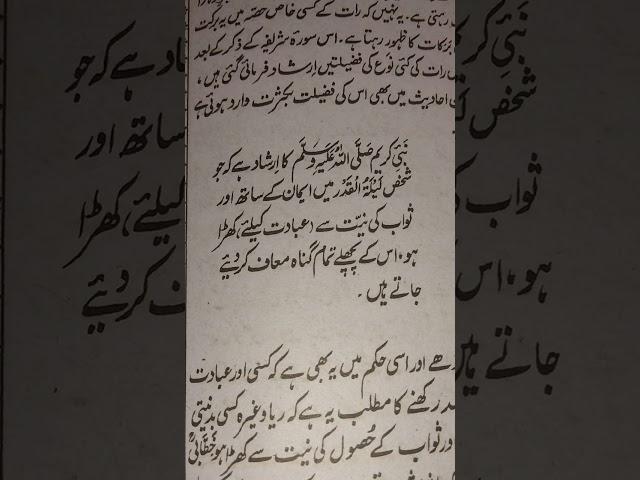 رہتی ہے۔ یہ نہیں کہ رات کے کسی خاص حصہ میں یہ برکت
برکات کا ظہور رہتا ہے۔ اس سورۃ شریفہ کے ذکر کے بعد
رات کی کئی نوع کی فضیلتیں ارشاد فرمائی گئی ہیں،
احادیث میں بھی اس کی فضیلت بکثرت وارد ہوئی ہے
نبیٔ کریم صَلَّی اللہُ عَلَیْہِ وَسَلَّم کا ارشاد ہے کہ جو
شخص لَیْلَۃُ الْقَدْر میں ایمان کے ساتھ اور
ثواب کی نیّت سے (عبادت کیلئے) کھڑا
ہو، اس کے پچھلے تمام گناہ معاف کر دیئے
جاتے ہیں۔
اور اسی حکم میں یہ بھی ہے کہ کسی اور عبادت
رکھنے کا مطلب یہ ہے کہ ریا وغیرہ کسی بدنیتی
اور ثواب کے حُصول کی نیت سے کھڑا ہو خطّابیؒ